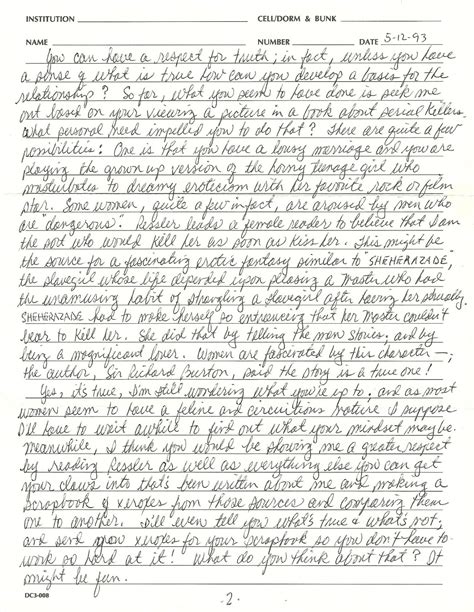 INSTITUTION CELL/DORM & BUNK
NAME NUMBER DATE 5-12-93
You can have a respect for truth; in fact, unless you have
a sense of what is true how can you develop a basis for the
relationship? So far, what you seem to have done is seek me
out based on your viewing a picture in a book about serial killers.
What personal need impelled you to do that? There are quite a few
possibilities: One is that you have a lousy marriage and you are
playing the grown up version of the horny teenage girl who
masturbates to dreamy eroticism with her favorite rock or film
star. Some women, quite a few in fact, are aroused by men who
are "dangerous". Ressler leads a female reader to believe that I am
the sort who would kill her as soon as kiss her. This might be
the source for a fascinating erotic fantasy similar to "SHEHERAZADE,"
the slavegirl whose life depended upon pleasing a Master who had
the unamusing habit of strangling a slavegirl after having her sexually.
SHEHERAZADE had to make herself so entrancing that her Master couldn't
bear to kill her. She did that by telling the man stories; and by
being a magnificent lover. Women are fascinated by this character—;
the author, Sir Richard Burton, said the story is a true one!
Yes, it's true, I'm still wondering what you're up to; and as most
women seem to have a feline and circuitous nature I suppose
I'll have to wait awhile to find out what your mindset may be.
Meanwhile, I think you would be showing me a greater respect
by reading Ressler as well as everything else you can get
your claws into that's been written about me and making a
scrapbook of xeroxes from those sources and comparing them
one to another. I'll even tell you what's true & what's not;
and send you xeroxes for your scrapbook so you don't have to
work so hard at it! What do you think about that? It
might be fun.
DC3-008
-2-